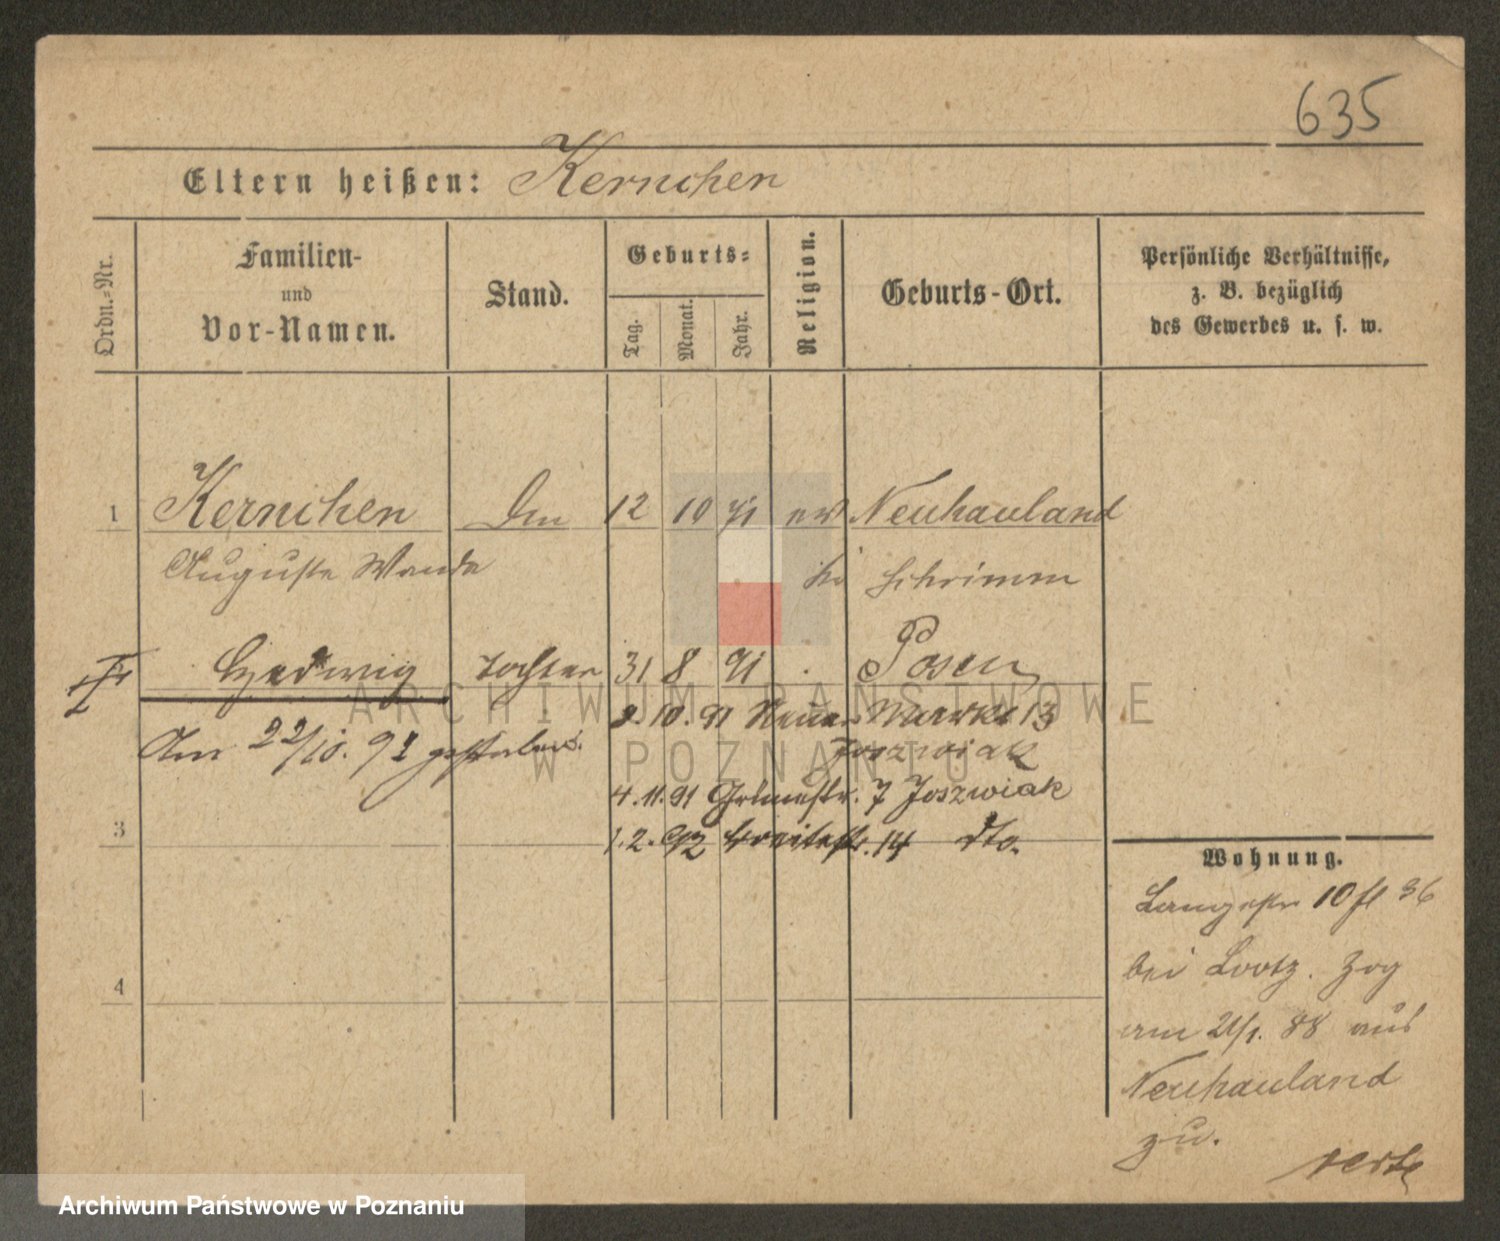 635
Eltern heißen: Kernchen
Ordn.-Nr.
Familien-
und
Vor-Namen.
Stand.
Geburts-
Tag.
Monat.
Jahr.
Religion.
Geburts-Ort.
Persönliche Verhältnisse,
z. B. bezüglich
des Gewerbes u. s. w.
1 Kernchen 12 10 71 ev Neuhauland
Auguste Wanda Schrimm
Hedwig Tochter 31 8 91 Posen
Am 22/10. gestorben.
2.10.91 Neuer Markt 13
Joszwiak
4.11.91 Joszwiak
3
1.2.92 Breitestr. 14 dto.
4
Wohnung.
Langestr 10
bei Lootz. Zog
am 21/1. 88 aus
Neuhauland
zu.
verte
ARCHIWUM PAŃSTWOWE
W POZNANIU
Archiwum Państwowe w Poznaniu